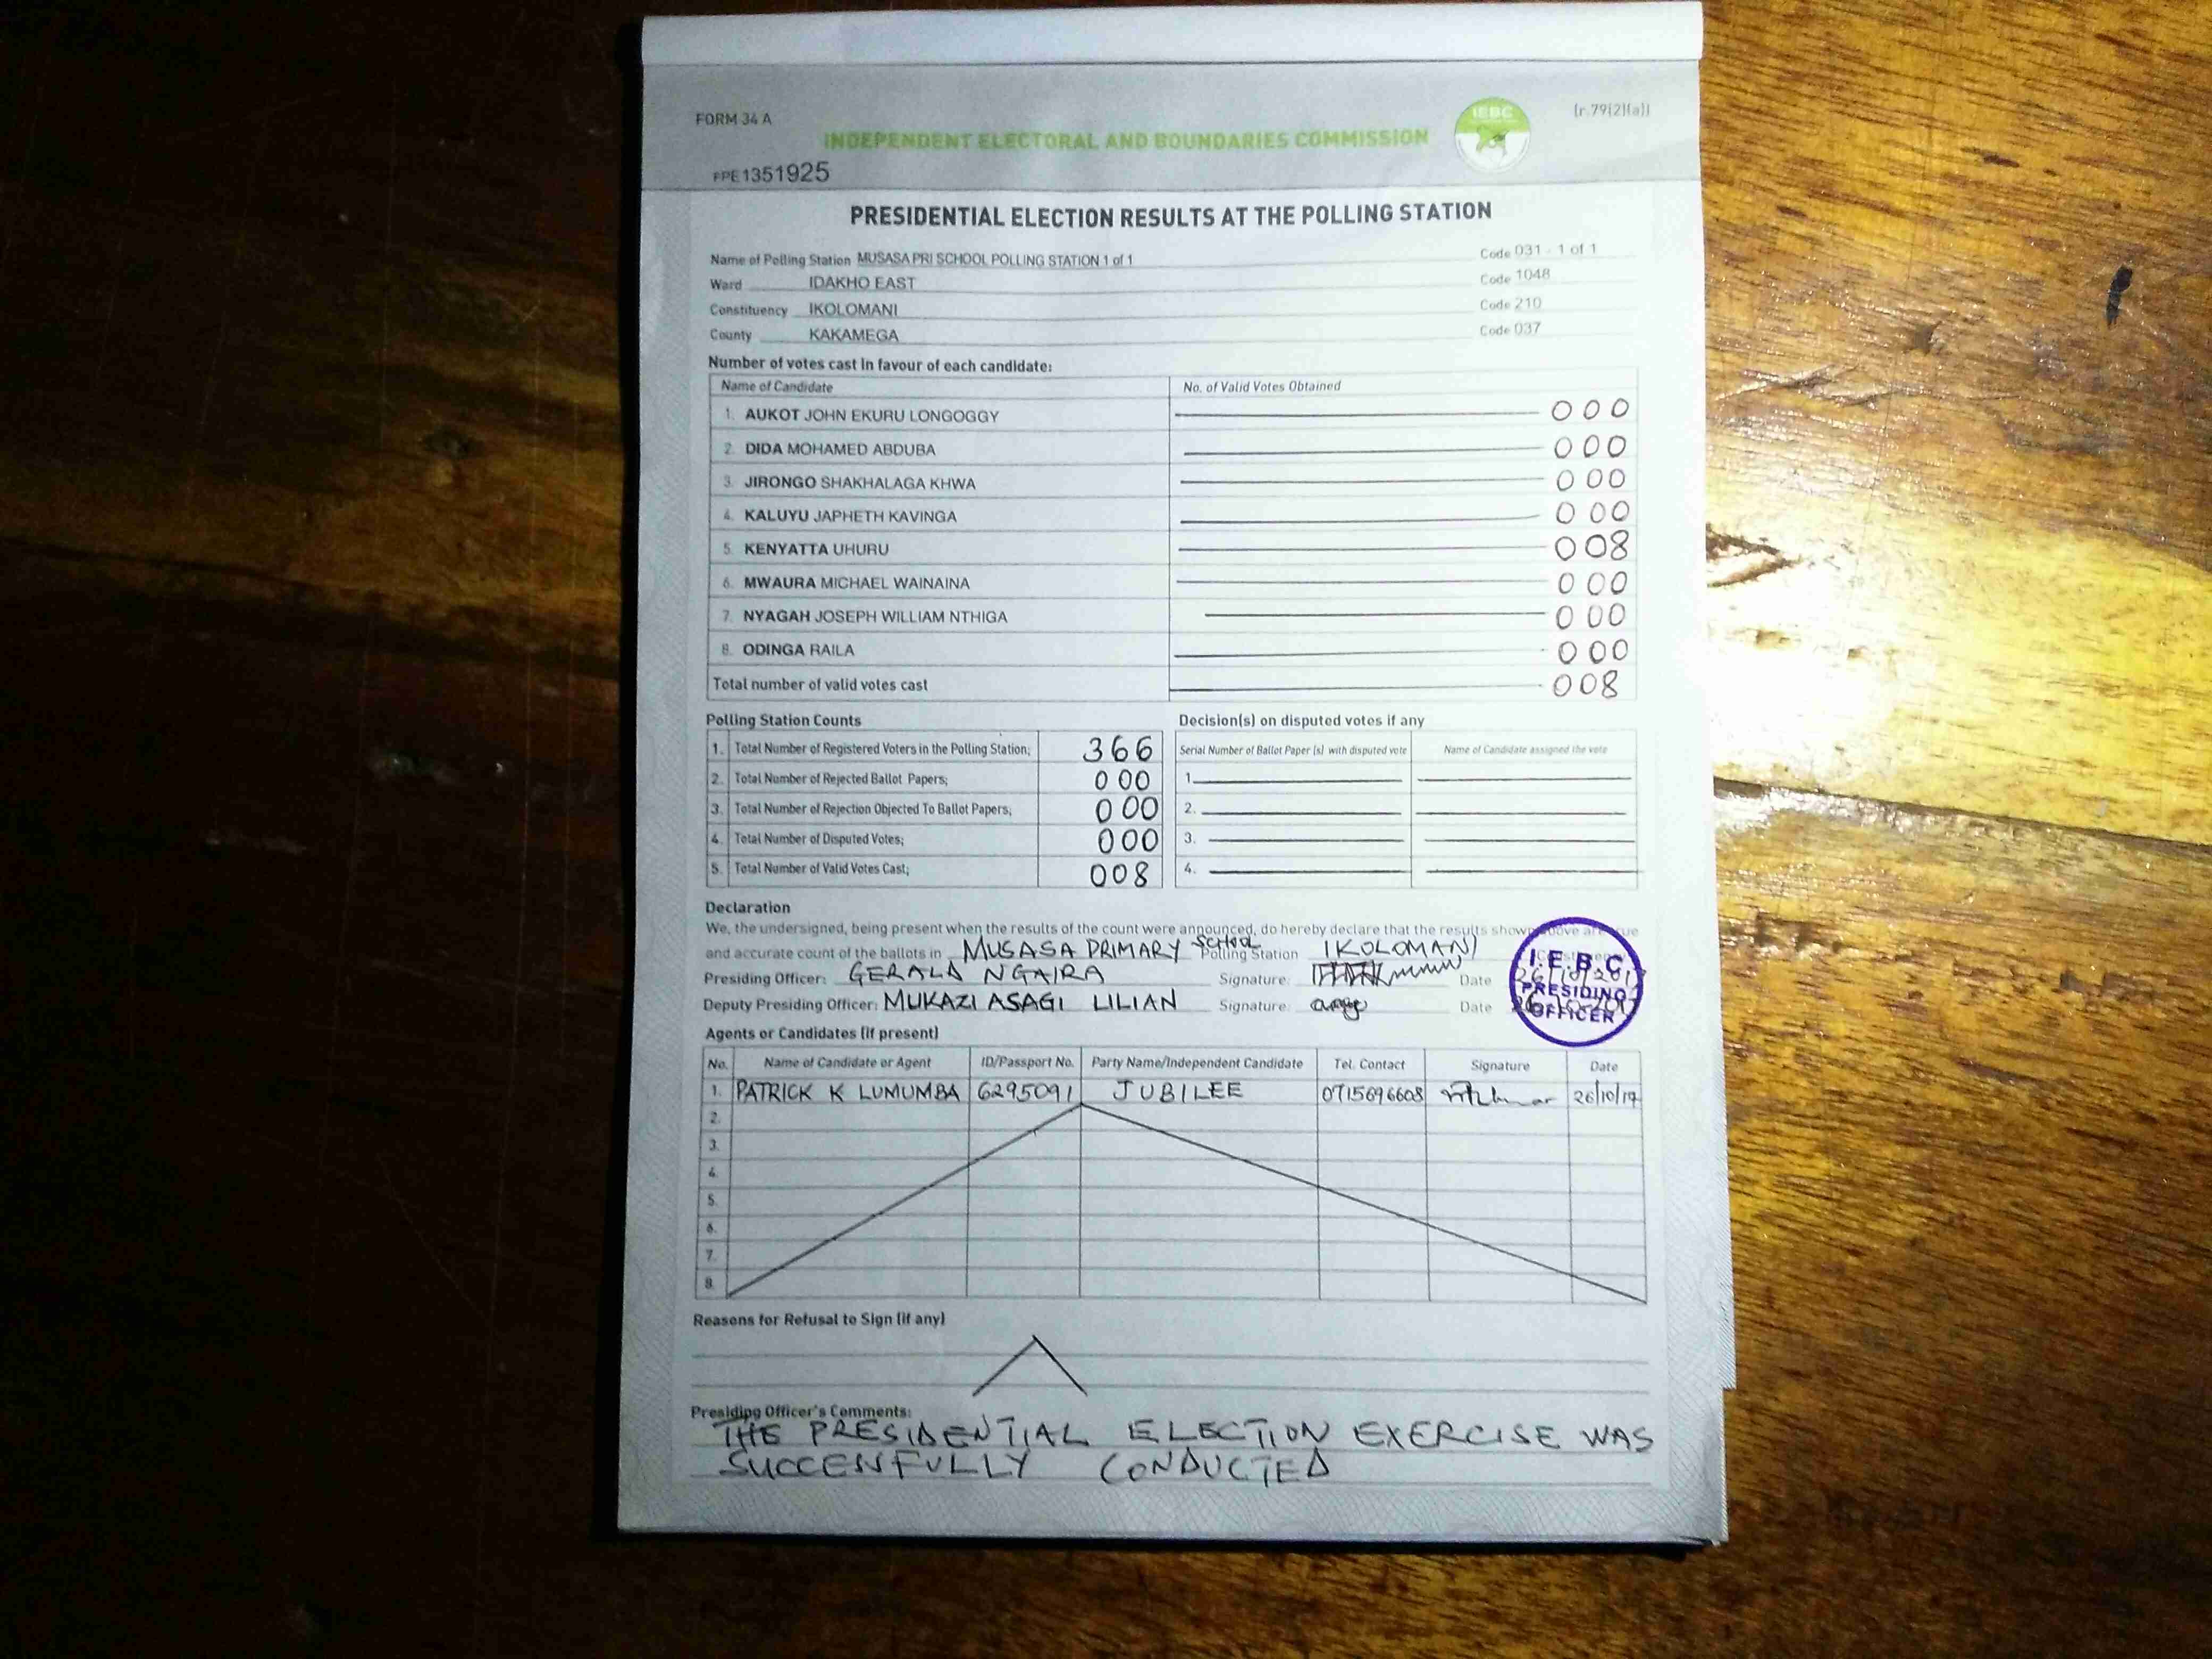 FORM 34 A
(r.79(2)(a))
IEBC
INDEPENDENT ELECTORAL AND BOUNDARIES COMMISSION
FPE1351925
PRESIDENTIAL ELECTION RESULTS AT THE POLLING STATION
Name of Polling Station MUSASA PRI SCHOOL POLLING STATION 1 of 1 Code 031 - 1 of 1
Ward IDAKHO EAST Code 1048
Constituency IKOLOMANI Code 210
County KAKAMEGA Code 037
Number of votes cast in favour of each candidate:
Name of Candidate No. of Valid Votes Obtained
1. AUKOT JOHN EKURU LONGOGGY 000
2. DIDA MOHAMED ABDUBA 000
3. JIRONGO SHAKHALAGA KHWA 000
4. KALUYU JAPHETH KAVINGA 000
5. KENYATTA UHURU 008
6. MWAURA MICHAEL WAINAINA 000
7. NYAGAH JOSEPH WILLIAM NTHIGA 000
8. ODINGA RAILA 000
Total number of valid votes cast 008
Polling Station Counts
1. Total Number of Registered Voters in the Polling Station; 366
2. Total Number of Rejected Ballot Papers; 000
3. Total Number of Rejection Objected To Ballot Papers; 000
4. Total Number of Disputed Votes; 000
5. Total Number of Valid Votes Cast; 008
Decision(s) on disputed votes if any
Serial Number of Ballot Paper (s) with disputed vote Name of Candidate assigned the vote
1.
2.
3.
4.
Declaration
We, the undersigned, being present when the results of the count were announced, do hereby declare that the results shown above are true
and accurate count of the ballots in MUSASA PRIMARY SCHOOL Polling Station IKOLOMANI
Presiding Officer: GERALD NGAIRA Signature: Date 26/10/2017
Deputy Presiding Officer: MUKAZI ASAGI LILIAN Signature: Date
I.E.B.C
PRESIDING
OFFICER
Agents or Candidates (if present)
No. Name of Candidate or Agent ID/Passport No. Party Name/Independent Candidate Tel. Contact Signature Date
1. PATRICK K LUMUMBA 6295091 JUBILEE 0715696608 26/10/17
2.
3.
4.
5.
6.
7.
8.
Reasons for Refusal to Sign (if any)
Presiding Officer's Comments:
THE PRESIDENTIAL ELECTION EXERCISE WAS
SUCCENFULLY CONDUCTED